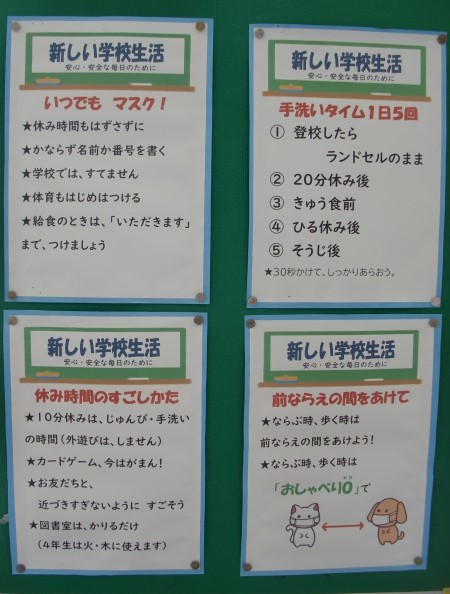 新しい学校生活
安心・安全な毎日のために
いつでも マスク!
★休み時間もはずさずに
★かならず名前か番号を書く
★学校では、すてません
★体育もはじめはつける
★給食のときは、「いただきます」
まで、つけましょう
新しい学校生活
安心・安全な毎日のために
手洗いタイム1日5回
① 登校したら
ランドセルのまま
② 20分休み後
③ きゅう食前
④ ひる休み後
⑤ そうじ後
★30秒かけて、しっかりあらおう。
新しい学校生活
安心・安全な毎日のために
休み時間のすごしかた
★10分休みは、じゅんび・手洗い
の時間(外遊びは、しません)
★カードゲーム、今はがまん!
★お友だちと、
近づきすぎないように すごそう
★図書室は、かりるだけ
(4年生は火・木に使えます)
新しい学校生活
安心・安全な毎日のために
前ならえの間をあけて
★ならぶ時、歩く時は
前ならえの間をあけよう!
★ならぶ時、歩く時は
「おしゃべり0」で